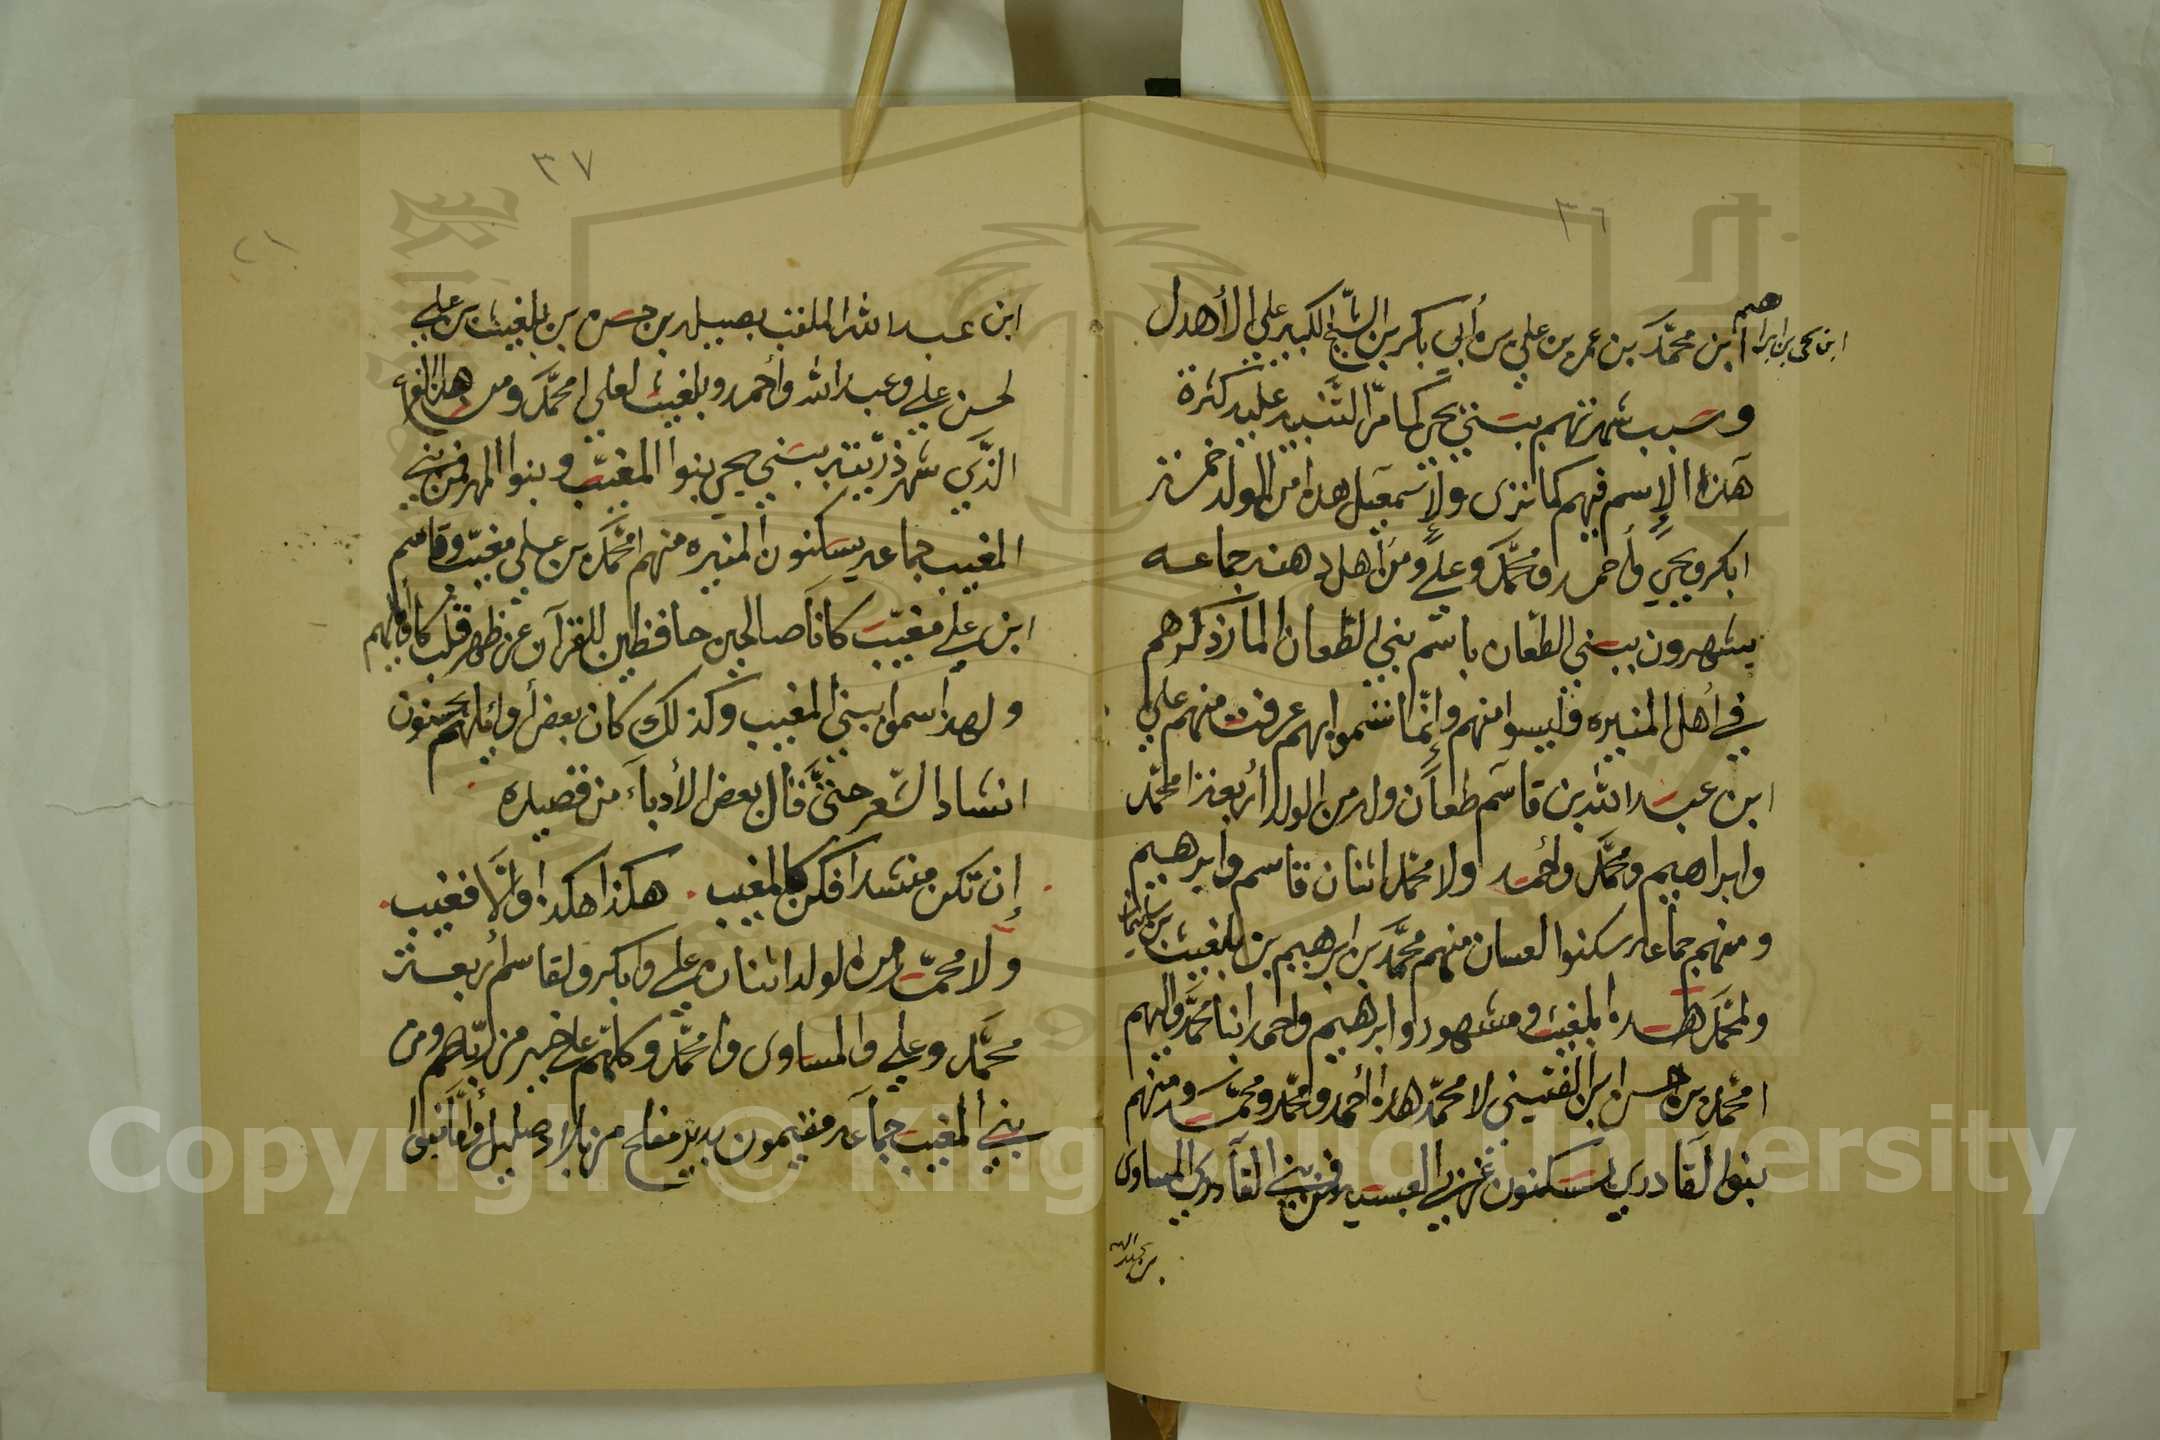 ٣٦
ابن يحي بن ابراهيم
ابن محمَّد بن عمر بن علي بن أبي بكر بن الشيخ الكبير علي الأهدل
وسبب شهرتهم ببني يحي كما مرّ التنبيه عليه كثرة
هذا الإسم فيهم كما ترى ولإسمعيل هذا من الولد خمسة
ابكر ويحي وأحمد ومحمَّد وعلي ومن أهل دهنه جماعه
يشهرون ببني الطعان باسم بني الطعان المار ذكرهم
في أهل المنيره وليسوا منهم وإنّما سموا بهم عرفت منهم علي
ابن عبد الله بن قاسم طعان وله من الولد أربعة امحمّد
وابراهيم ومحمَّد وأحمد ولامحمد اثنان قاسم وابرهيم
ومنهم جماعه سكنوا لعسان منهم محمَّد بن ابرهيم بن بلغيث بن
ولمحمَّد هذا بلغيث ومشهور وابرهيم واحمد ابنا محمَّد واليهم
امحمّد بن حسن ابن الفتيني لامحمّد هذا أحمد ومحمّد ومحمّد ومنهم
بنوا القادري يسكنون غربي العبسيه فمن بني القادري المساوى
بن عبد الله
٣٧
٢١
ابن عبد الله الملقب بصيلد بن حسن بن بلغيث بن علي
لحسن علي وعبد الله وأحمد وبلغيث لعلي امحمَّد ومن هذا
الذي شهر ذرّيته ببني يحي بنوا المغيّب وبنوا المهر فمن بني
المغيب جماعه يسكنون المنيره منهم امحمَّد بن علي مغيّب وقاسم
ابن علي مغيّب كانا صالحين حافظين للقرآن عن ظهر قلب كأوايلهم
ولهذا سموا ببني المغيب وكذلك كان بعض أوايلهم يحسنون
انشاد الشعر حتّى قال بعض الأدباء من قصيده
إن تكن منشدا فكن كالمغيب . هكذا هكذا والّا فغيب .
ولامحمّد من الولد اثنان علي وابكر ولقاسم أربعة
محمَّد وعلي والمساوى وامحمَّد وكلّهم على خير من ربّهم ومن
بني المغيب جماعه مقيمون بدير مفلح من بلاد صليل وأمّا بنوا